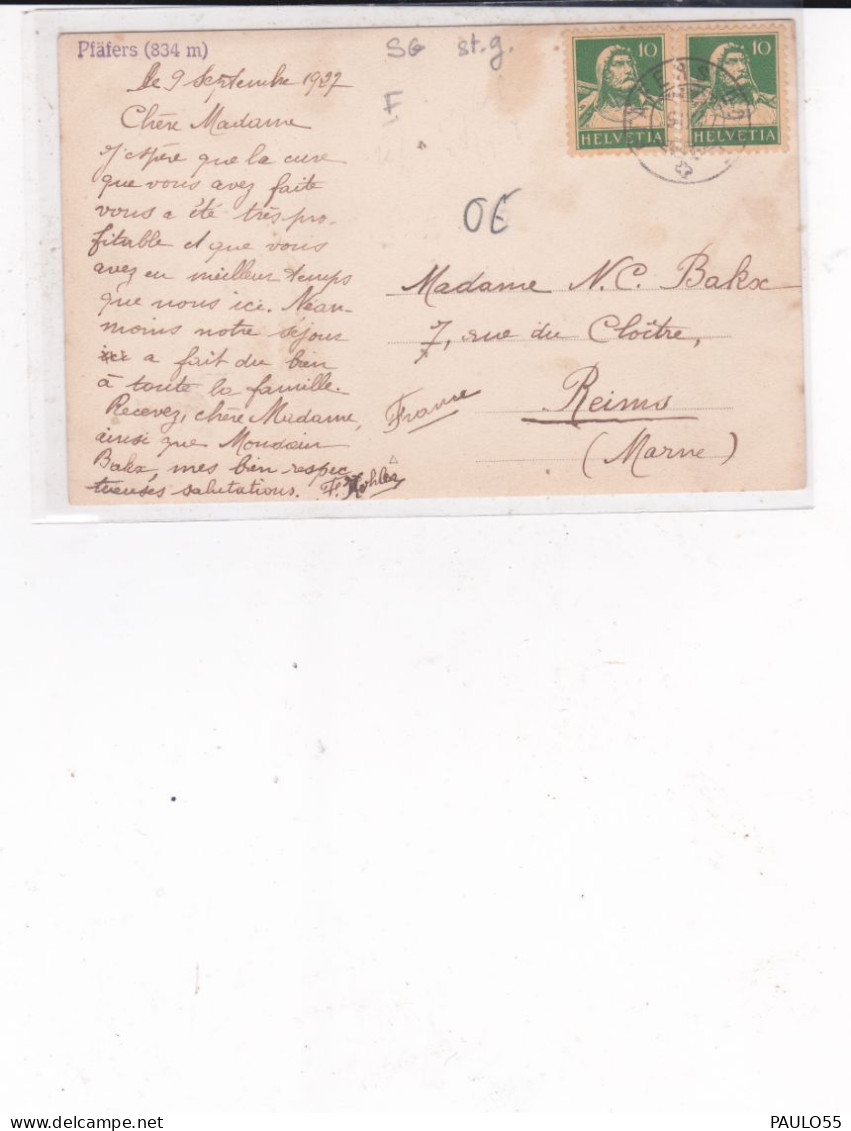 Pfäfers (834 m)
SG st.g.
F
10 10
HELVETIA HELVETIA
Le 9 Septembre 1927
Chère Madame
J'espère que la cure
que vous avez faite
vous a été très pro-
fitable et que vous
avez eu meilleur temps
que nous ici. Néan-
moins notre séjour
ici a fait du bien
à toute la famille.
Recevez, chère Madame,
ainsi que Monsieur
Bakx, mes bien respec
tueuses salutations. F. Kohler
OE
Madame N.C. Bakx
7, rue du Cloître,
Reims
(Marne)
France
PAULO55